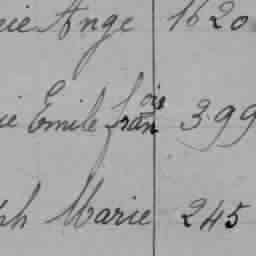 rie Ange 1620
ie Emile franois 399
ph Marie 245